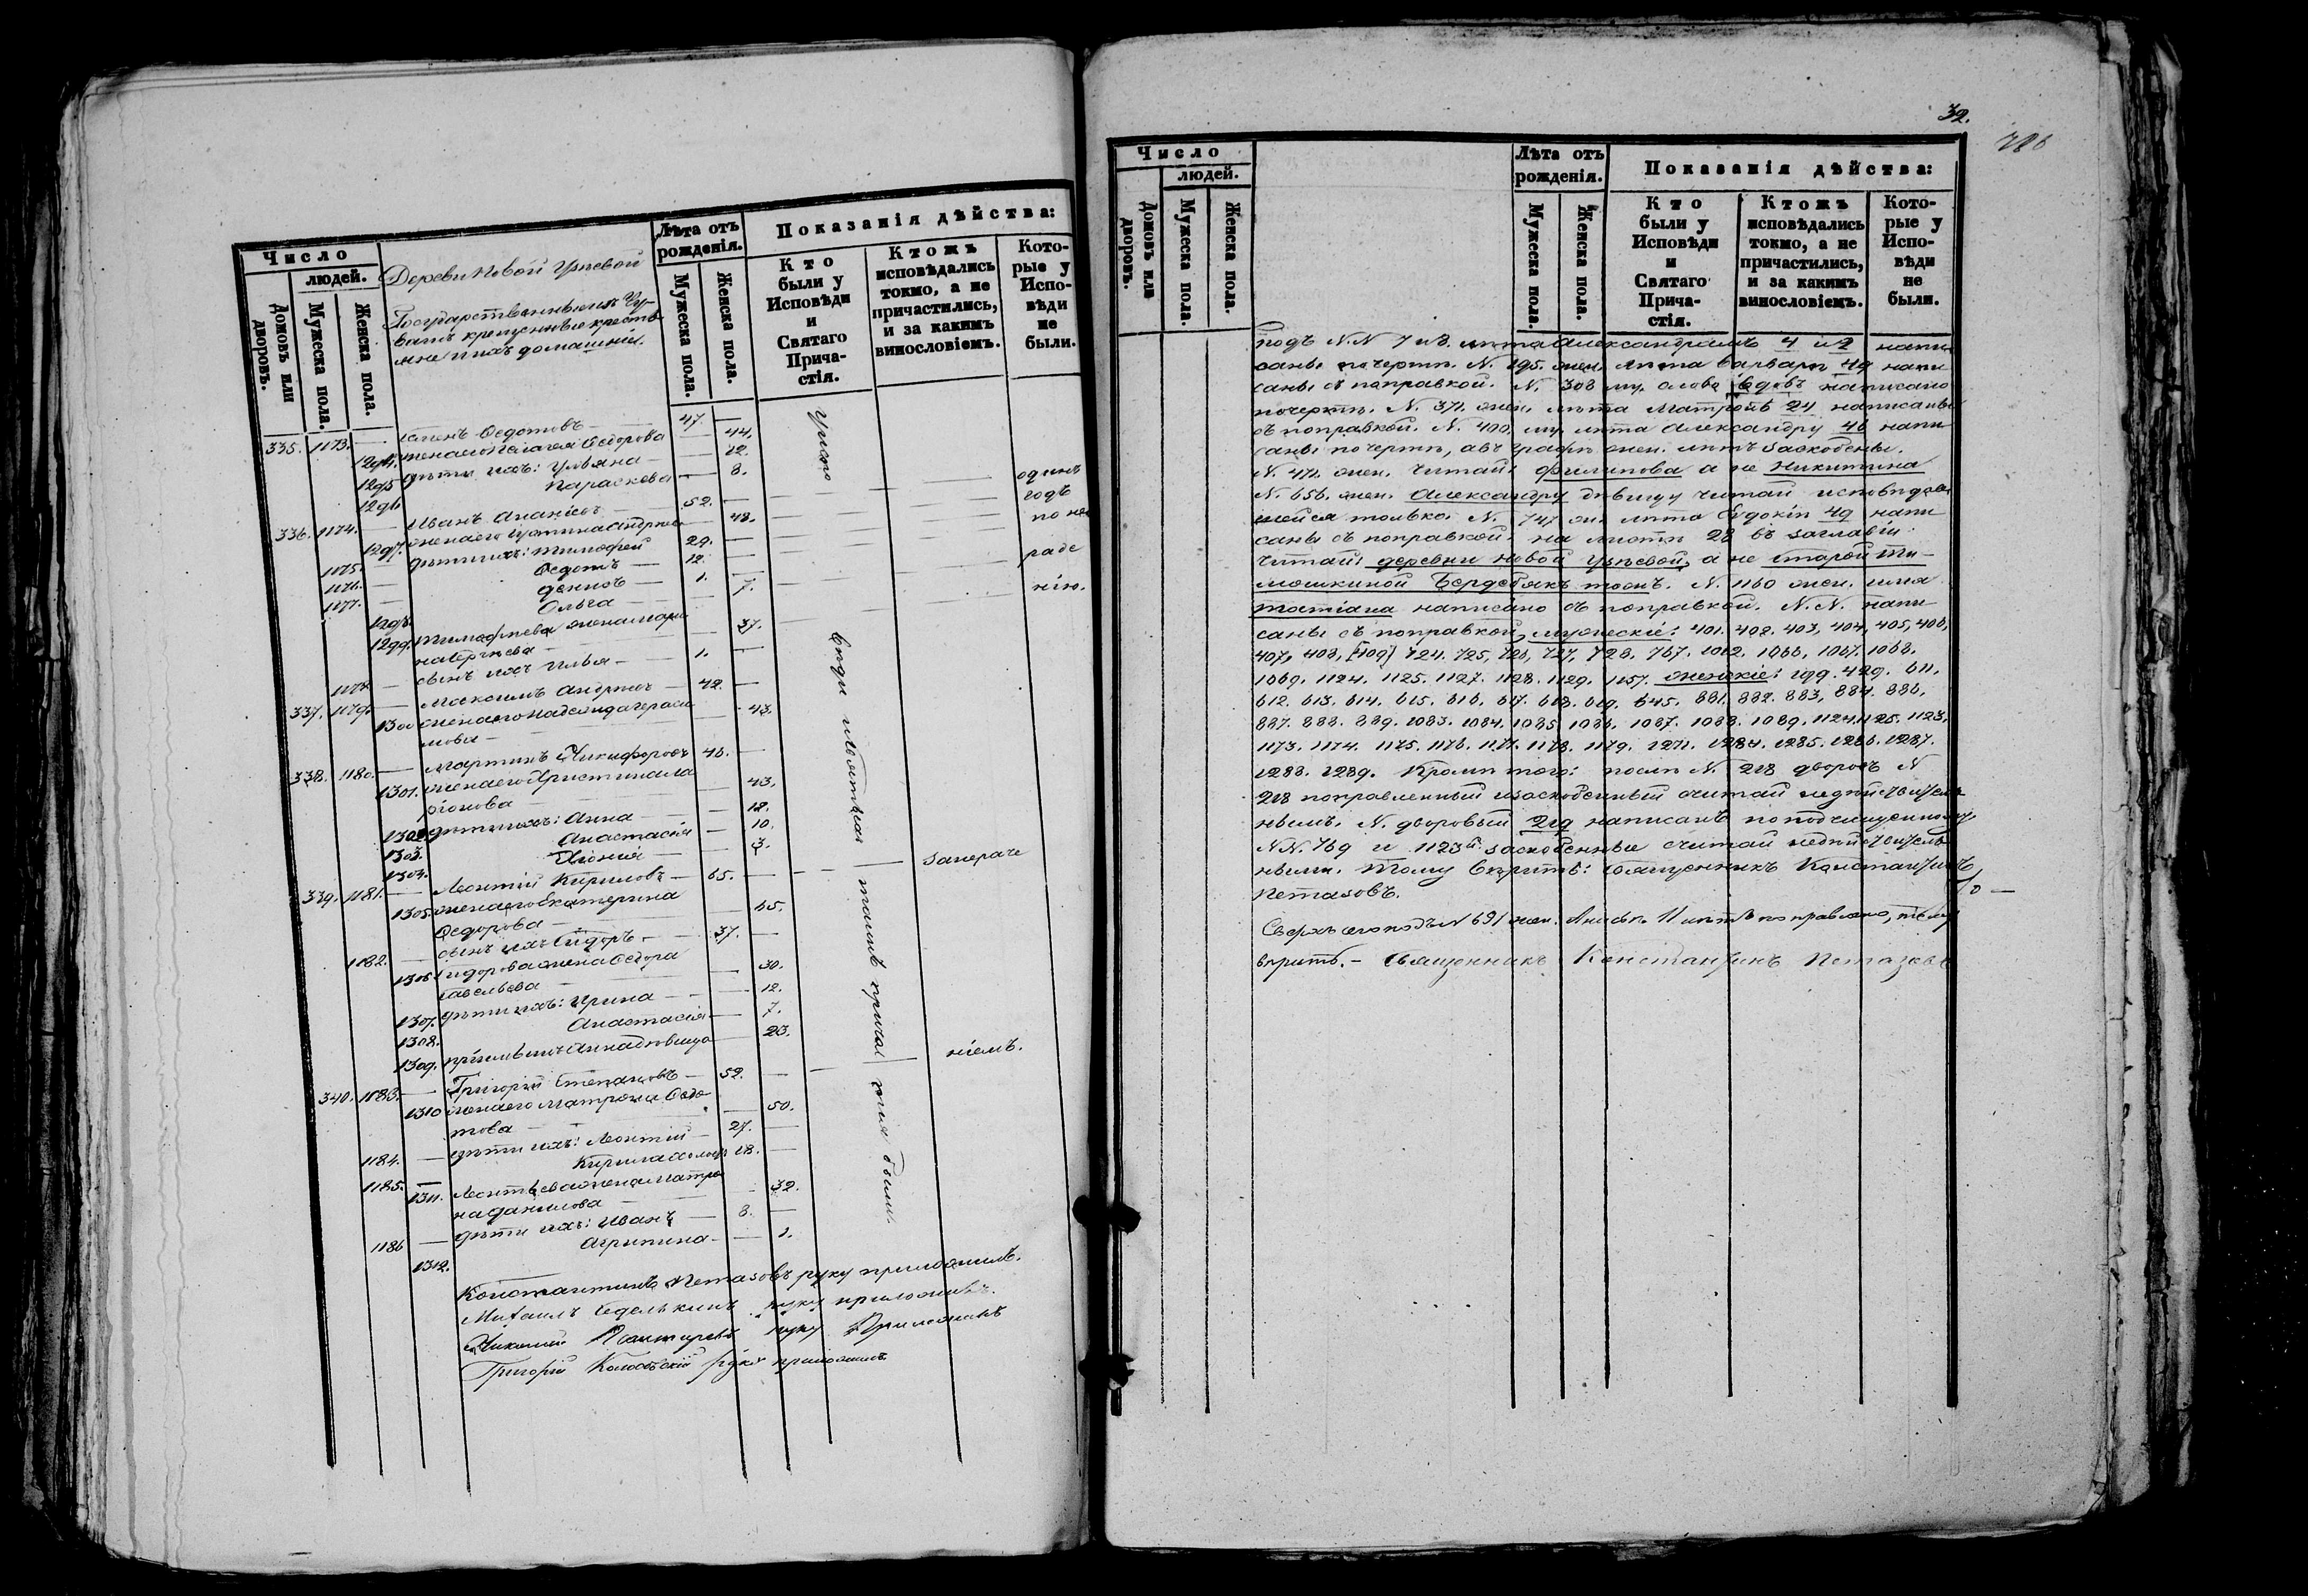 Число
людей.
Домовъ или дворовъ.
Мужеска пола.
Женска пола.
Деревни Новой Узѣевой
Государственныхъ Чу-
вашъ крещенные крестья
не и ихъ домашніи.
Лѣта отъ рожденія.
Мужеска пола.
Женска пола.
Показанія дѣйства:
Кто были у Исповѣди и Святаго Прича-стія.
Ктожъ исповѣдались токмо, а не причастились, и за какимъ винословіемъ.
Кото-рые у Испо-вѣди не были.
335. 1173. — Ѳедотовъ — 47. —
1294. жена его Пелагея Ѳедорова — 44.
1295 дѣти ихъ: Ульяна — — 12.
1296 Параскева — — 8.
336. 1174. — Иванъ — 52. —
1297. жена его Устина Андреева — 48.
1175. дѣти ихъ: Тимофей 29. —
1176. — Ѳедотъ — 12. —
1177. — Денисъ — 1. —
1298. Ольга — — 7.
1299. Тимофеева жена Мари
на Сергѣева — — 37.
1178. — сынъ ихъ Илья — 1. —
337. 1179. — Максимъ Андреевъ — 42. —
1300 жена его Надежда Гераси
мова — — 43.
338. 1180. — Мартинъ Никифоровъ 46. —
1301. жена его Христина Ла
ріонова — — 43.
1302 дѣти ихъ: Анна — — 18.
1303. Анастасія — 10.
1304. Хіонія — — 3.
339. 1181. — Леонтій Кириловъ — 65. —
1305. жена его Екатерина
Ѳедорова — — 65.
1182. — сынъ ихъ Сидоръ — 37. —
1306 Сидорова жена Ѳедора
Савельева — — 30.
1307. дѣти ихъ: Ирина — — 12.
1308. Анастасія — — 7.
1309. Анна дѣвица — 23.
340. 1183. — Григорій Степановъ — 52. —
1310 жена его Матрона Ѳедо
това — — 50.
1184. — дѣти ихъ: Леонтій — 27. —
1185. — Кирила 18. —
1311. Леонтьева жена Матро
на Данилова — — 32.
1186 — дѣти ихъ: Иванъ — 8. —
1312. Агрипина — — 1.
у исповѣди и святыя тайнъ причастія были.
одинъ
годъ
по не
раде
нію.
Константинъ Петазовъ руку приложилъ.
Михаилъ руку приложилъ.
Николай руку приложилъ
Григорій руку приложилъ
32.
Число
людей.
Домовъ или дворовъ.
Мужеска пола.
Женска пола.
Лѣта отъ рожденія.
Мужеска пола.
Женска пола.
Показанія дѣйства:
Кто были у Исповѣди и Святаго Прича-стія.
Ктожъ исповѣдались токмо, а не причастились, и за какимъ винословіемъ.
Кото-рые у Испо-вѣди не были.
Подъ N.N 7 и 8. лѣта Александрамъ 4 и 2 напи
саны по черти. N. 195. жен. лѣта Варвары 49 напи
саны съ поправкой. N. 308 му. слова вдовъ написано
почерти. N. 371. жен. лѣта Матронѣ 24 написаны
съ поправкой. N. 400, му. лѣта Александру 46 напи
саны по черти, а въ графѣ жен. лѣтъ заскоблены.
N. 471. жен. читай: Филипова а не Никитина
N. 656. жен. Александру дѣвицу читай исповѣдав
шейся только. N. 747 ж. лѣта Евдокіи 49 напи
саны съ поправкой. на листѣ 28 въ заглавіи
читай: деревни новой Узѣевой, а не старой Ти-
мошкиной Бердебякъ тожъ. N. 1160 жен. имя
Татіана написано съ поправкой. N.N. напи
саны съ поправкой, мужескіе: 401. 402. 403, 404, 405, 406,
407, 408, [409] 724. 725, 726, 727, 728. 767. 1062. 1066, 1067. 1068.
1069. 1124. 1125. 1127. 1128. 1129. 1157. женскіе: 199. 429. 611,
612. 613. 614. 615. 616, 617. 618. 619. 645. 881. 882. 883, 884. 886,
887. 888. 889. 1083. 1084. 1085. 1086. 1087. 1088. 1089. 1124. 1125. 1123,
1173. 1174. 1175. 1176. 1177. 1178. 1179. 1271. 1284. 1285. 1286. 1287.
1288. 1289. Кромѣ того: послѣ N. 218 дворовъ N
218 поправленный и заскобленный считай недѣйствитель
нымъ. N. дворовый 219 написанъ по подчищенному,
N.N. 769 и 1123й заскобленные считай недѣйствитель
ными. Тому вѣрить: Священникъ Константинъ
Петазовъ.
Сверхъ сего подъ N 691 жен. 11 лѣтъ поправлено, тому
вѣрить. – Священникъ Константинъ Петазовъ